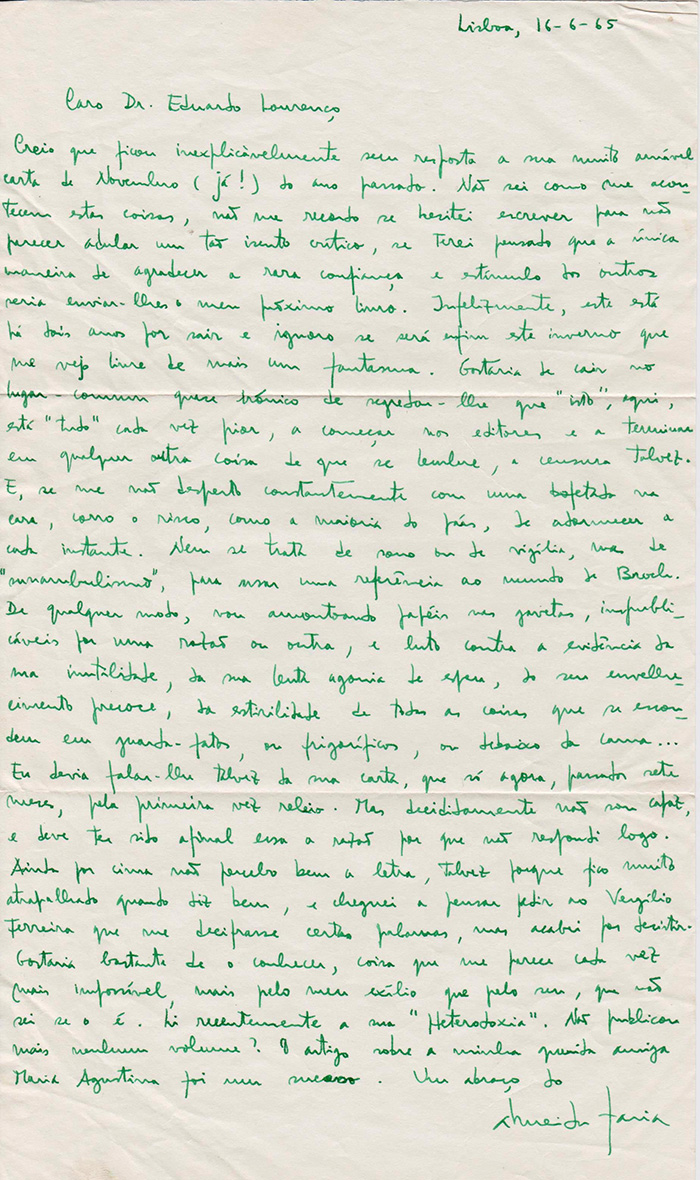 Lisboa, 16-6-65
Caro Dr. Eduardo Lourenço,
Creio que ficou inexplicàvelmente sem resposta a sua muito amável
carta de Novembro (já!) do ano passado. Não sei como me acon-
tecem estas coisas, não me recordo se hesitei escrever para não
parecer adular um tão isento crítico, se terei pensado que a única
maneira de agradecer a rara confiança e estímulo dos outros
seria enviar-lhes o meu próximo livro. Infelizmente, este está
há dois anos por sair e ignoro se será enfim este inverno que
me vejo livre de mais um fantasma. Gostaria de cair no
lugar-comum quase irónico de segredar-lhe que "isto", aqui,
está "tudo" cada vez pior, a começar nos editores e a terminar
em qualquer outra coisa de que se lembre, a censura talvez.
E, se me não desperto constantemente com uma bofetada na
cara, corro o risco, como a maioria do país, de adormecer a
cada instante. Nem se trata de sono ou de vigília, mas de
"sunambulismo", para usar uma referência ao mundo de Broch.
De qualquer modo, vou amontoando papéis nas gavetas, impubli-
cáveis por uma razão ou outra, e luto contra a evidência da
sua inutilidade, da sua lenta agonia de espera, do seu envelhe-
cimento precoce, da estirilidade de todas as coisas que se escon-
dem em guarda-fatos, ou frigoríficos, ou debaixo da cama...
Eu devia falar-lhe talvez da sua carta, que só agora, passados sete
meses, pela primeira vez releio. Mas decididamente não sou capaz,
e deve ter sido afinal essa a razão por que não respondi logo.
Ainda por cima não percebo bem a letra, talvez porque fico muito
atrapalhado quando diz bem, e cheguei a pensar pedir ao Vergílio
Ferreira que me decifrasse certas palavras, mas acabei por desistir.
Gostaria bastante de o conhecer, coisa que me parece cada vez
mais impossível, mais pelo meu exílio que pelo seu, que não
sei se o é. Li recentemente a sua "Heterodoxia". Não publicou
mais nenhum volume? O artigo sobre a minha querida amiga
Maria Agustina foi um sucesso. Um abraço do
Almeida Faria